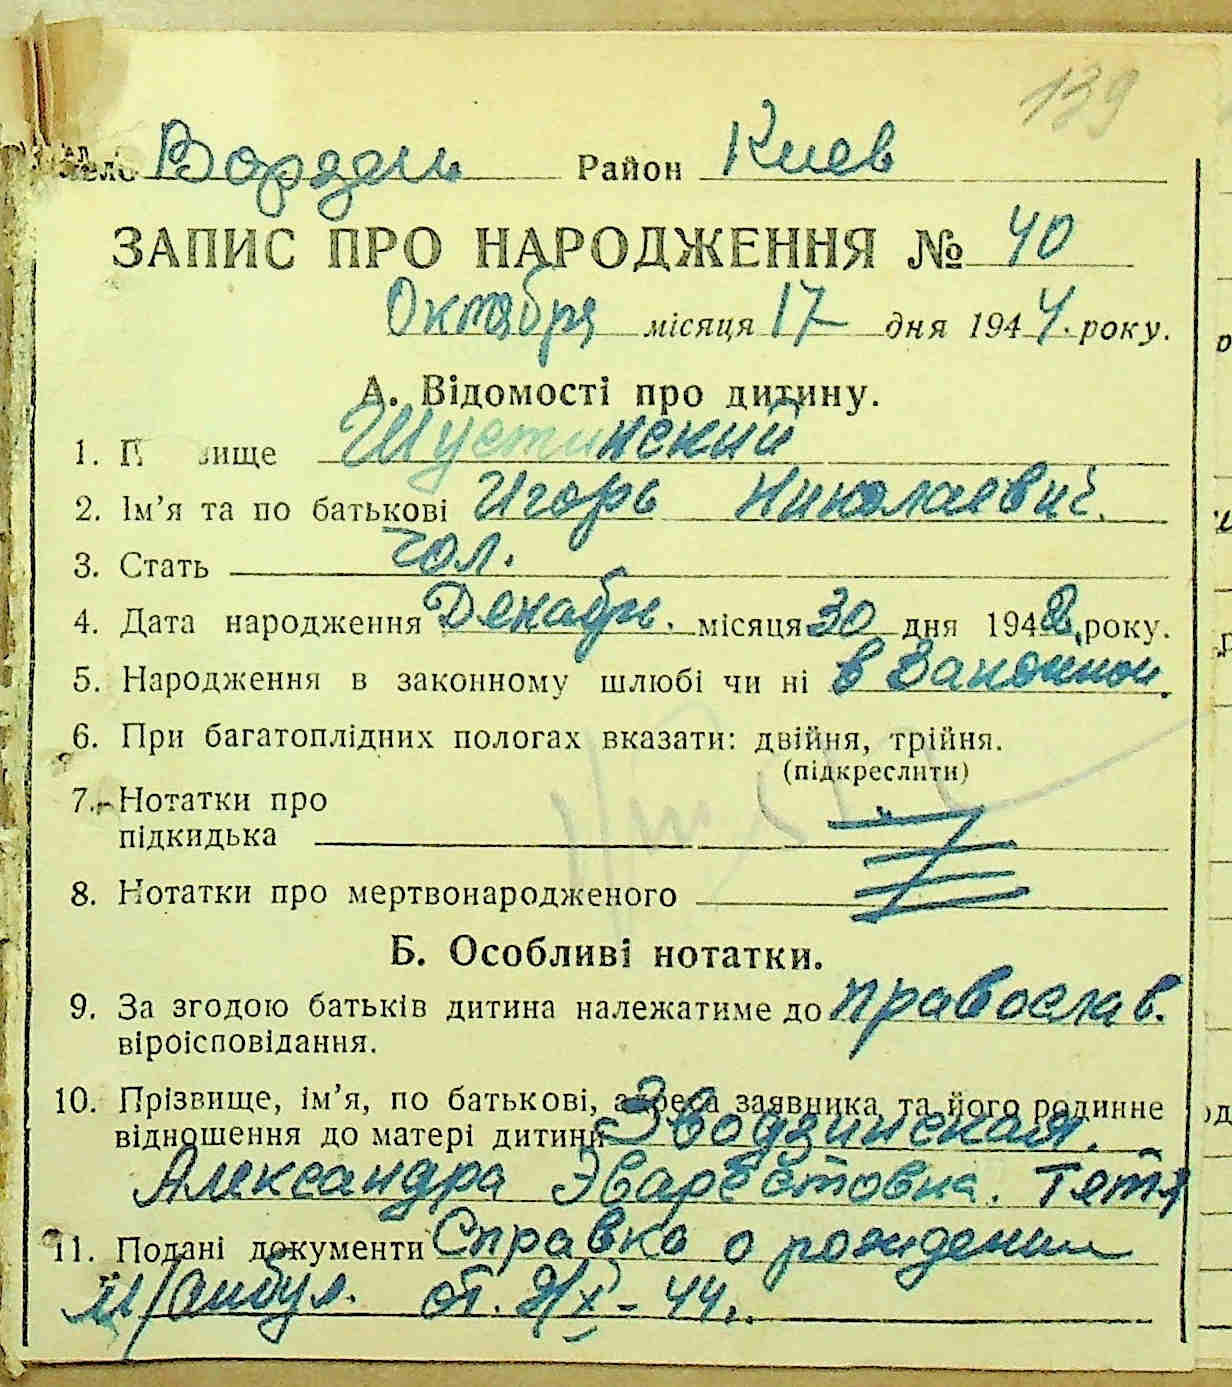 139
Район Киев
ЗАПИС ПРО НАРОДЖЕННЯ № 40
Октября місяця 17 дня 1944. року.
А. Відомості про дитину.
1. Шустинский
2. Ім'я та по батькові Игорь Николаевич.
3. Стать чол.
4. Дата народження Декабр. місяця 30 дня 1942 року.
5. Народження в законному шлюбі чи ні в
6. При багатоплідних пологах вказати: двійня, трійня.
(підкреслити)
7. Нотатки про
підкидька
8. Нотатки про мертвонародженого
Б. Особливі нотатки.
9. За згодою батьків дитина належатиме до православ.
віроісповідання.
10. Прізвище, ім'я, по батькові, адреса заявника та його родинне
відношення до матері дитини Зводзинская.
Александра Эварестовна. Тетя
11. Подані документи Справка о рождении
от. X - 44.